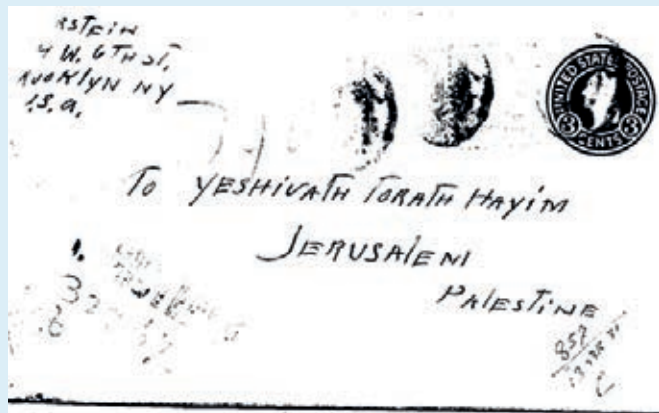 RSTEIN
4 W. 6TH ST,
ROOKLYN NY
.S.A.
UNITED STATES POSTAGE
3 CENTS 3
TO YESHIVATH TORATH HAYIM
JERUSALEM
PALESTINE
857
C